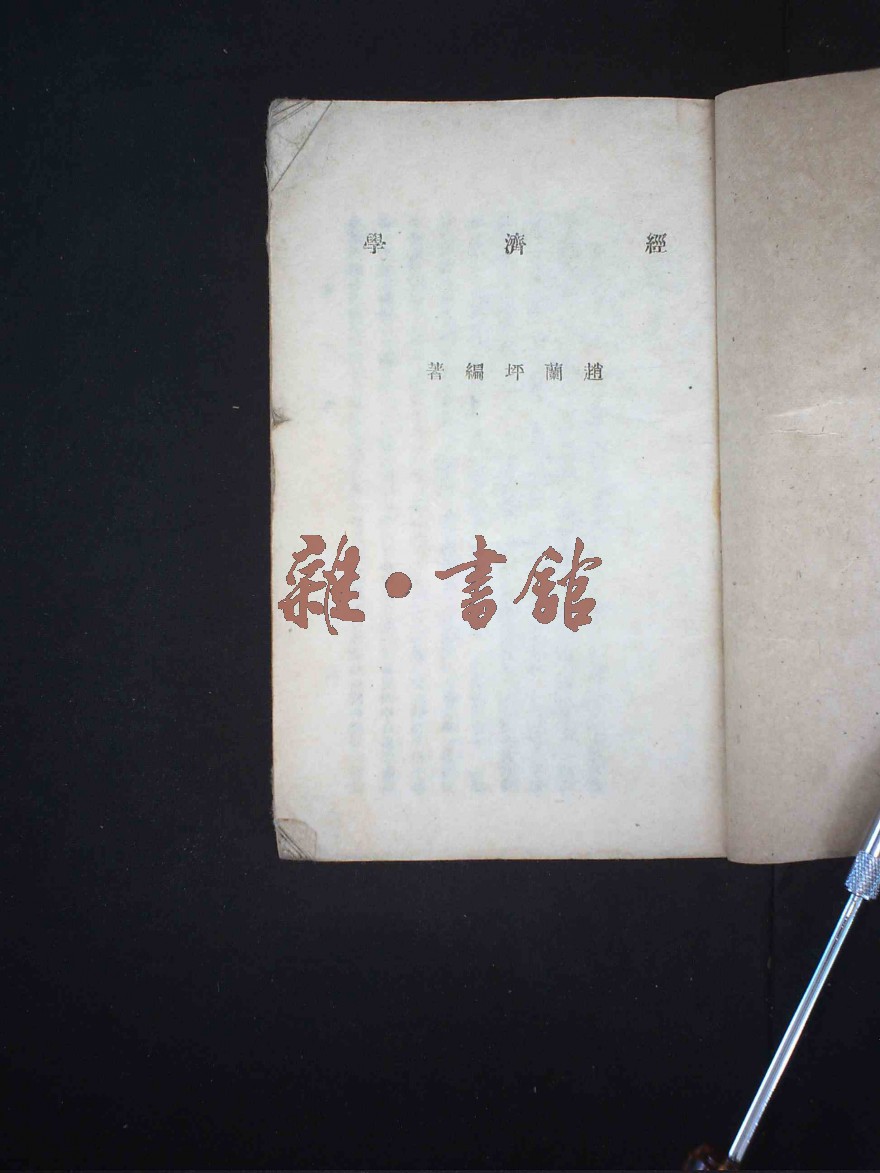 經濟學
趙蘭坪編著
雜•書館